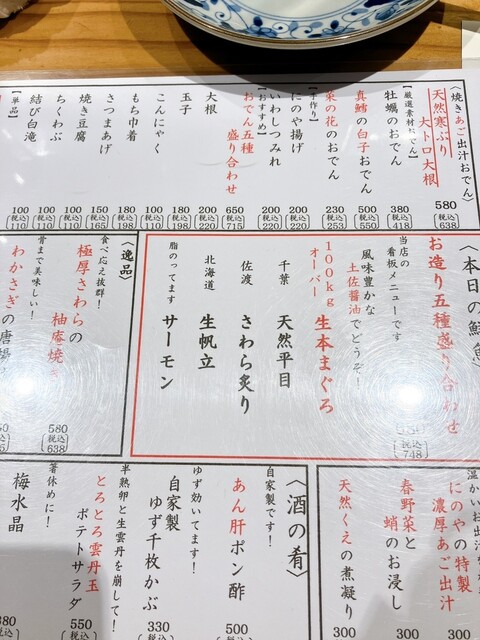 〈焼きあご出汁おでん〉
天然寒ぶり
大トロ大根
580
(税込638)
【厳選素材おでん】
牡蠣のおでん
380
(税込418)
真鱈の白子おでん
500
(税込550)
菜の花のおでん
230
(税込253)
【手作り】
にのや揚げ
200
(税込220)
いわしつみれ
200
(税込220)
【おすすめ】
おでん五種
盛り合わせ
650
(税込715)
大根
200
(税込220)
玉子
180
(税込198)
こんにゃく
100
(税込110)
もち巾着
180
(税込198)
さつまあげ
150
(税込165)
焼き豆腐
100
(税込110)
ちくわぶ
100
(税込110)
結び白滝
100
(税込110)
【単品】
〈本日の鮮魚
お造り五種盛り合わせ
(税込748)
当店の
看板メニューです
風味豊かな
土佐醤油でどうぞ！
100kg
オーバー
生本まぐろ
千葉
天然平目
佐渡
さわら炙り
北海道
生帆立
脂のってます
サーモン
〈逸品〉
食べ応え抜群！
極厚さわらの
柚庵焼き
580
(税込638)
骨まで美味しい！
わかさぎの唐揚
温かいお出汁
にのやの特製
濃厚あご出汁
300
春野菜と
蛸のお浸し
300
天然くえの煮凝り
300
〈酒の肴〉
自家製です！
あん肝ポン酢
500
(税込
ゆず効いてます！
自家製
ゆず千枚かぶ
330
(税込
半熟卵と生雲丹を崩して！
とろとろ雲丹玉
ポテトサラダ
550
(税込
箸休めに！
梅水晶
380
(税込